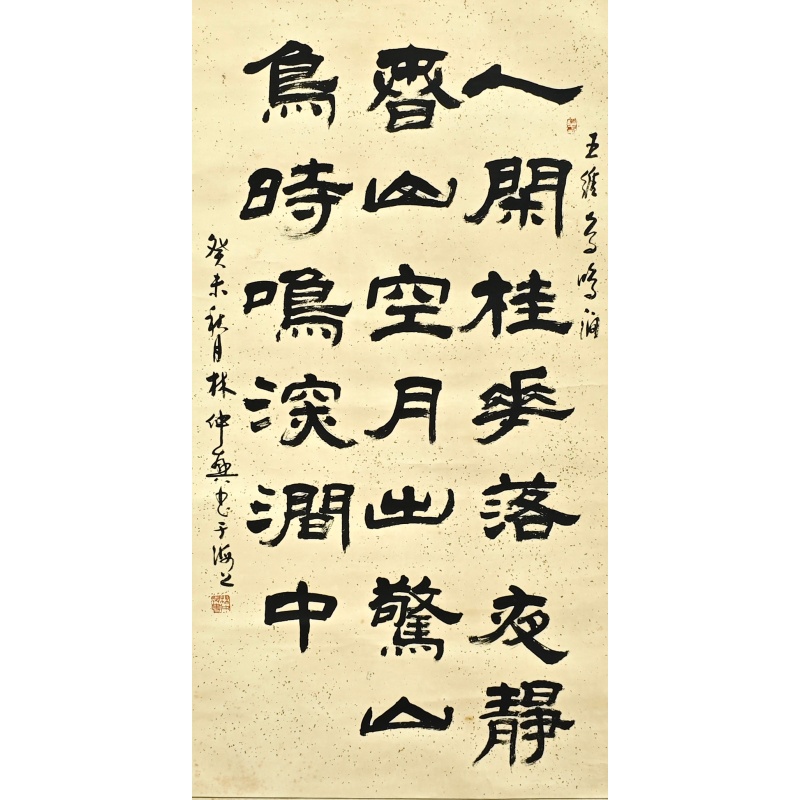 王維鳥鳴澗
人閑桂華落夜靜
春山空月出驚山
鳥時鳴深澗中
癸未秋月林仲興書于海上